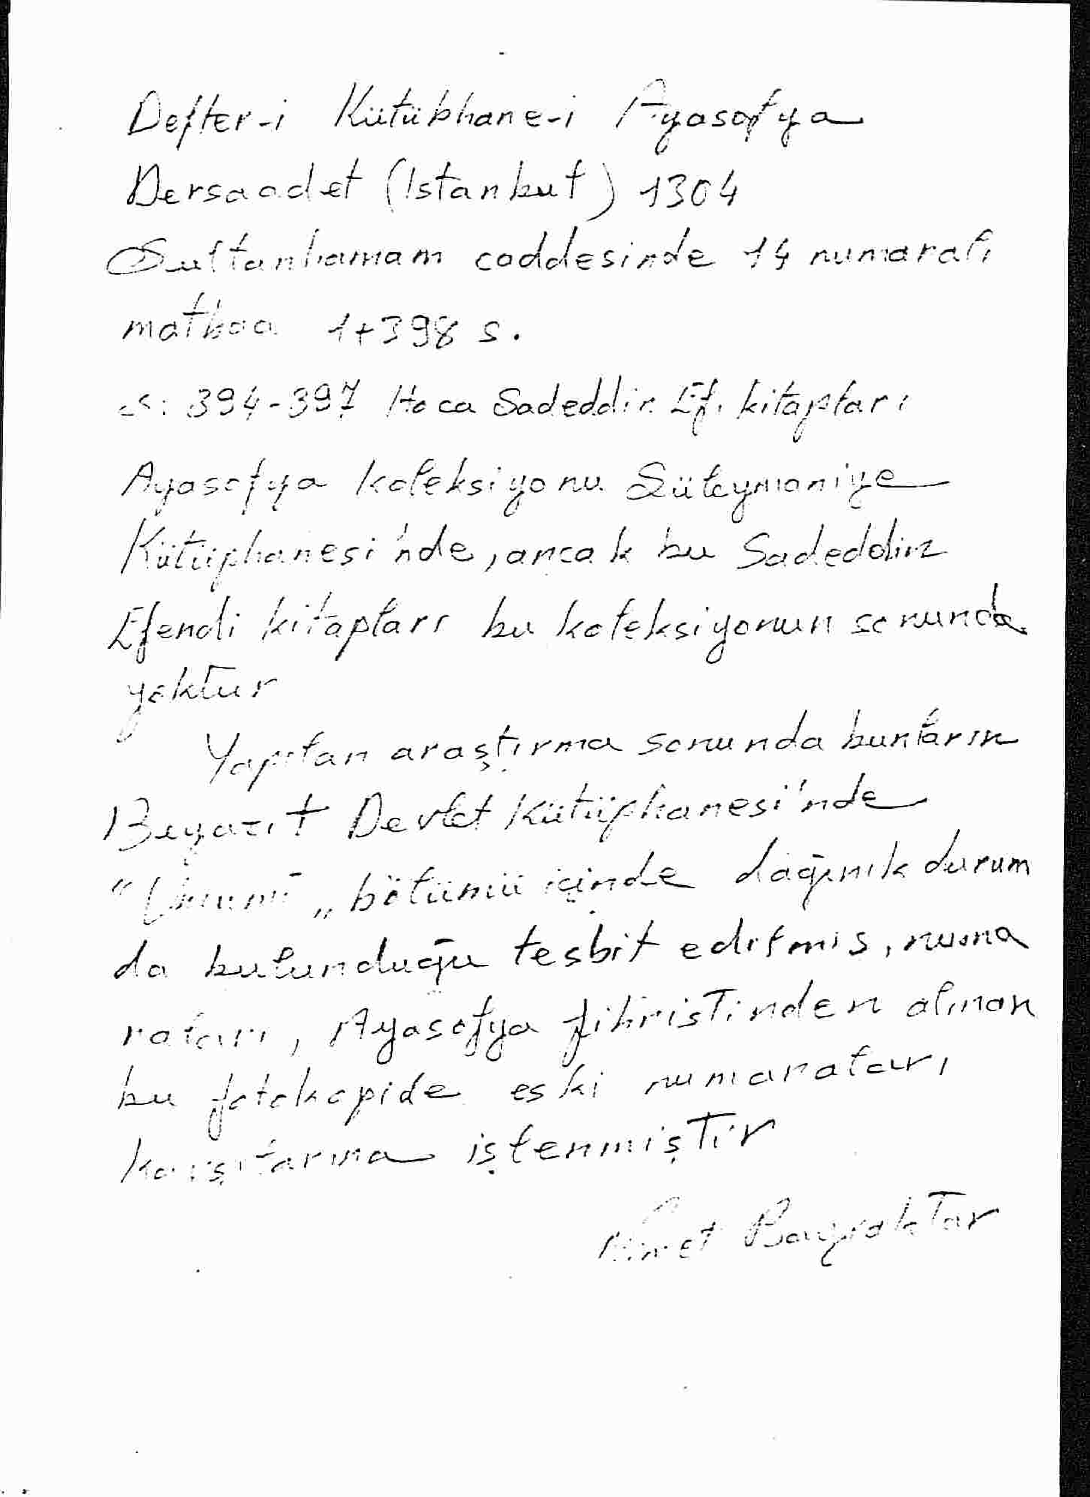 Defter-i Kütübhane-i Ayasofya
Dersaadet (Istanbul) 1304
Sultanhamam caddesinde 14 numaralı
matbaa 1+398 s.
s: 394-397 Hoca Sadeddin Ef. kitapları
Ayasofya koleksiyonu Süleymaniye
Kütüphanesi'nde, ancak bu Sadeddin
Efendi kitapları bu koleksiyonun sonunda
yoktur
Yapılan araştırma sonunda bunların
Beyazıt Devlet Kütüphanesi'nde
"Umumî" bölümü içinde dağınık durum
da bulunduğu tesbit edilmiş, numa
raları, Ayasofya fihristinden alınan
bu fotokopide eski numaraları
karşılarına işlenmiştir
Nimet Bayraktar